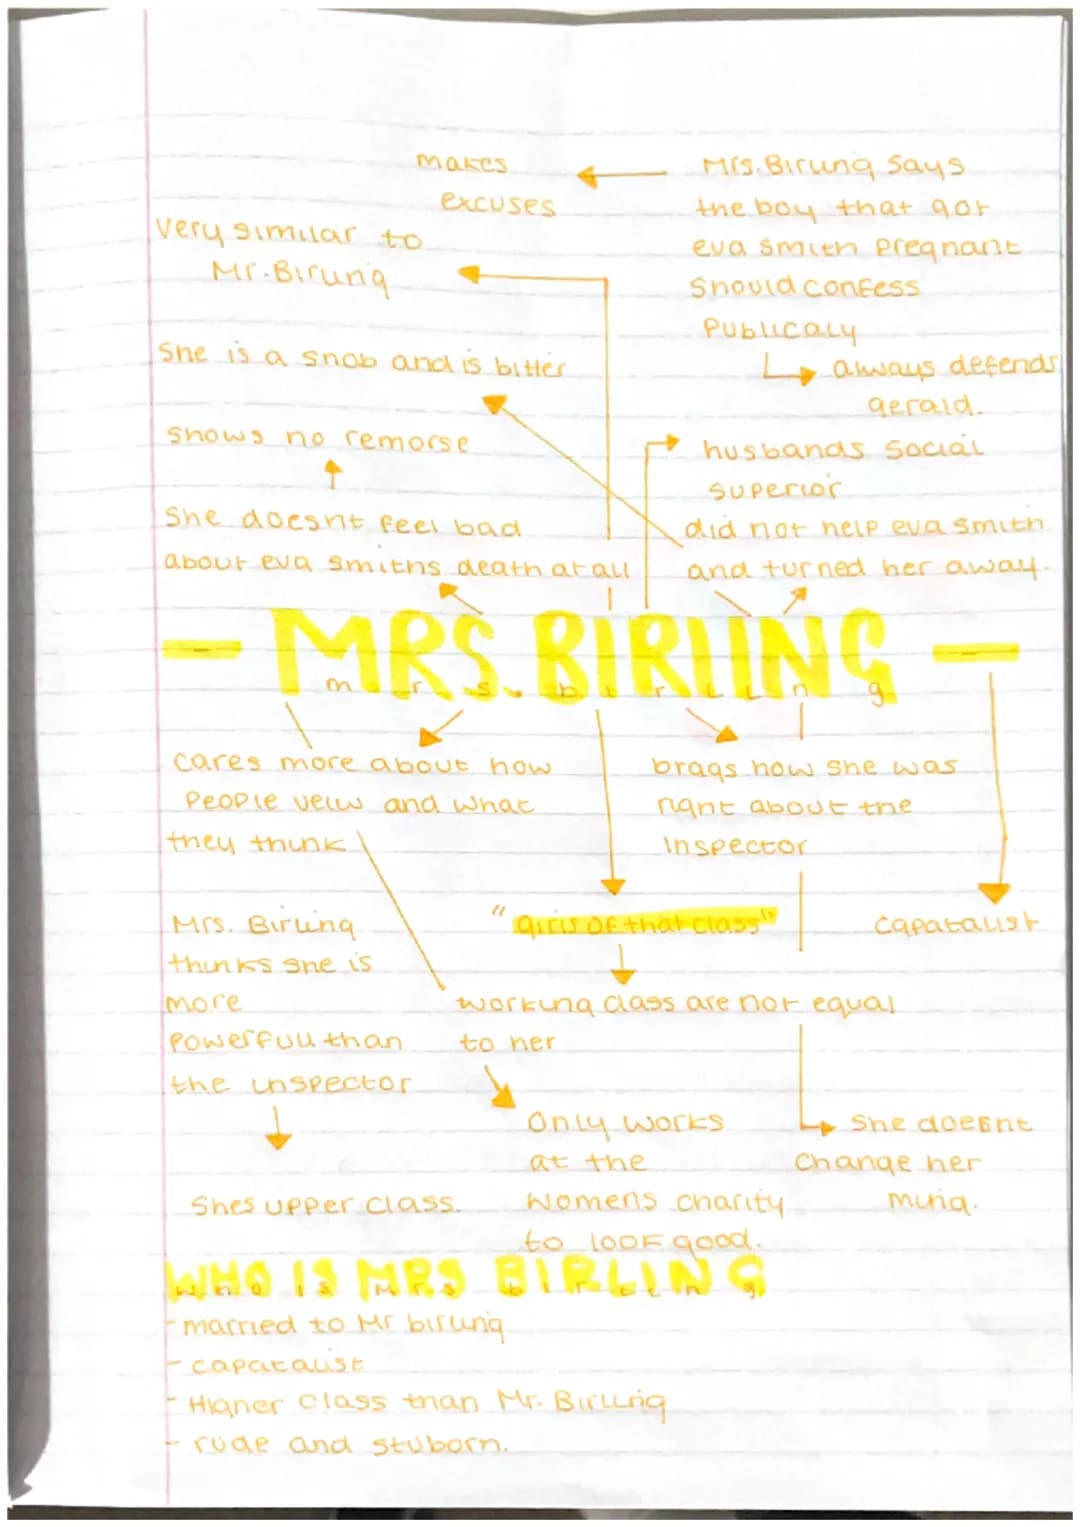 makes
excuses
Mrs. Birling says
the boy that got
eva smith pregnant
should confess
publicaly
always defends
gerald.
very similar to
Mr. Birling
she is a snob and is bitter
shows no remorse
She doesnt feel bad
about eva smiths death at all
husbands social
superior
did not help eva smith
and turned her away.
- MRS. BIRLING -
mrs. birling
cares more about how
people veiw and what
they think
brags how she was
right about the
inspector
"girls of that class"
capatalist
Mrs. Birling
thinks she is
more
powerfull than
the inspector
working class are not equal
to her
Shes upper class.
Only works
at the
womens charity
to look good.
She doesnt
change her
mind.
WHO IS MRS BIRLING
who is mrs birling
- married to Mr birling
- capatalist
- Higher class than Mr. Birling
- rude and stuborn.